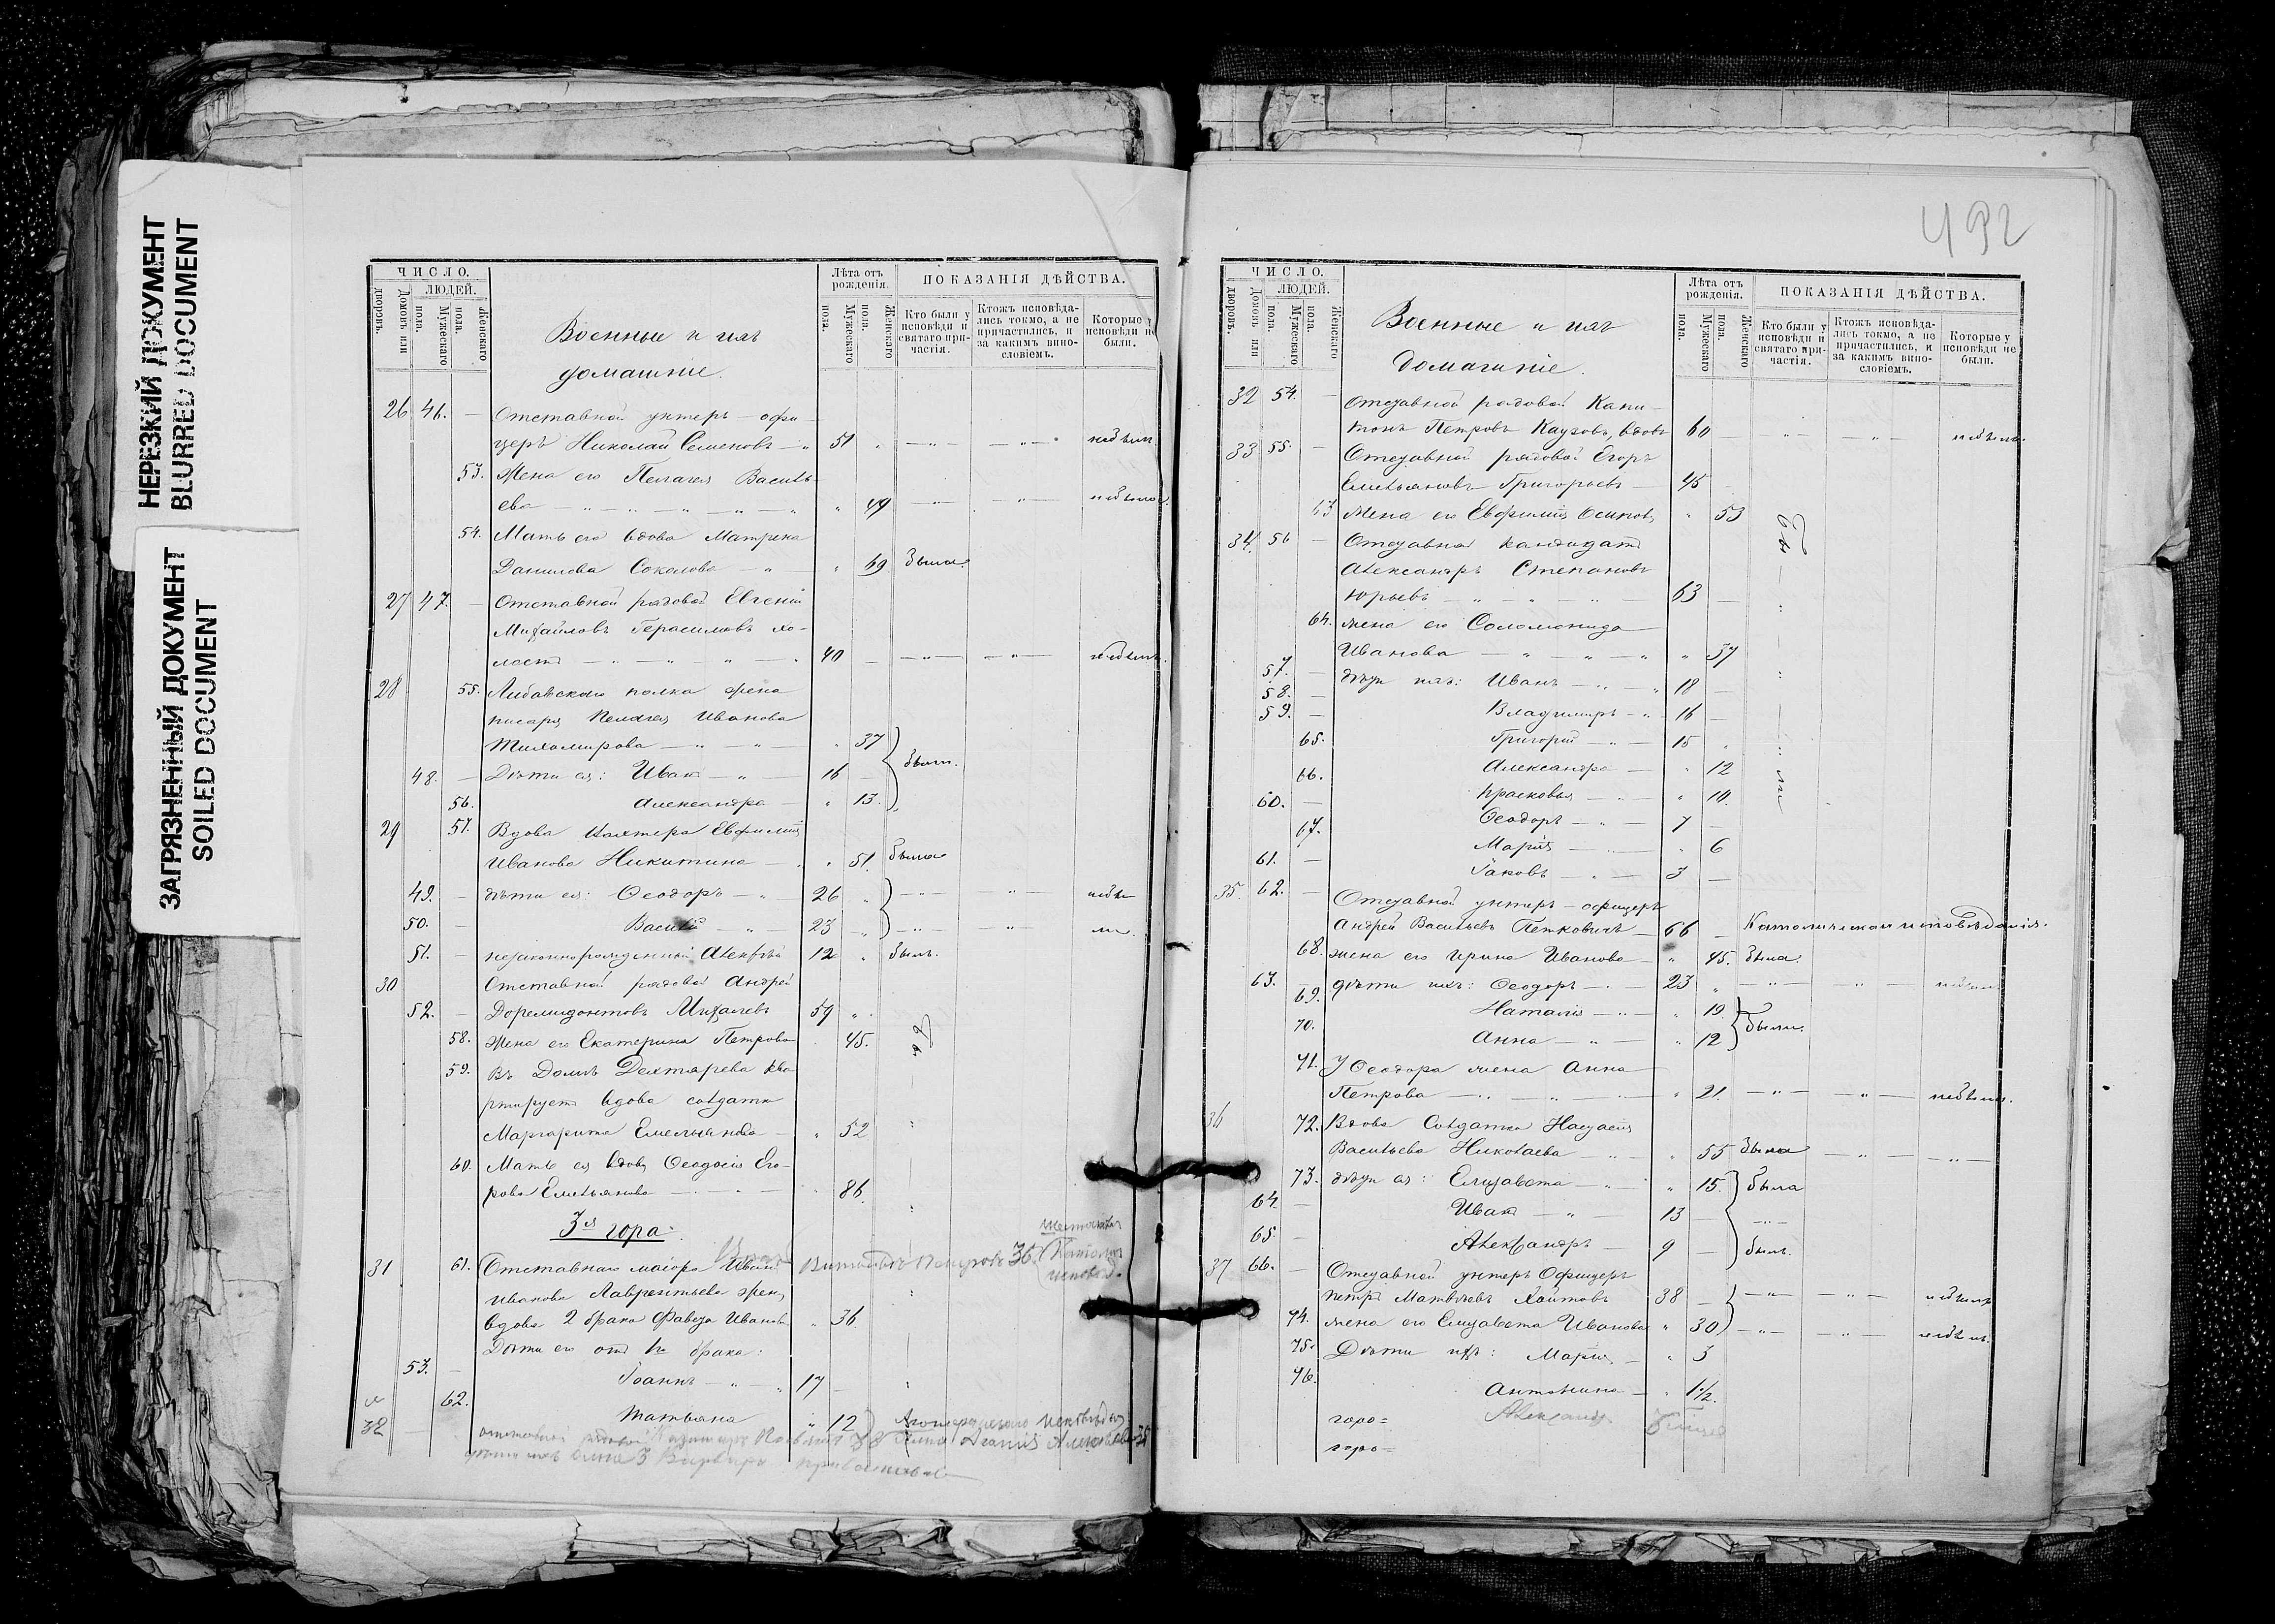 НЕРЕЗКИЙ ДОКУМЕНТ
BLURRED DOCUMENT
ЗАГРЯЗНЕННЫЙ ДОКУМЕНТ
SOILED DOCUMENT
ЧИСЛО.
ЛЮДЕЙ.
Домовъ или дворовъ.
Мужескаго пола.
Женскаго пола.
Военные и ихъ
домашніе.
Лѣта отъ рожденія.
Мужескаго пола.
Женскаго пола.
ПОКАЗАНІЯ ДѢЙСТВА.
Кто были у исповѣди и святаго причастія.
Ктожъ исповѣдались токмо, а не причастились, и за какимъ винословіемъ.
Которые у исповѣди не были.
26 46. — Отставной унтеръ-офи-
церъ Николай Семеновъ — 51
53. Жена его Пелагея Василь-
ева — 49
54. Мать его вдова Матрена
Данилова Соколова — 69 была
27 47. — Отставной рядовой Евгеній
Михайловъ Герасимовъ хо-
лостъ — 40
28 55. Либавскаго полка жена
писаря Пелагея Иванова
Тихомирова — 37
48. — Дѣти ея: Иванъ — 16 были.
56. Александра — 13.
29 57. Вдова вахтера Евфимія
Иванова Никитина — 51. была
49. — дѣти ея: Ѳеодоръ — 26
50. — Василій — 23
51. — незаконнорожденный Алексѣй 12 былъ.
30 Отставной рядовой Андрей
52. — Доримидонтовъ Михайловъ 59
58. Жена его Екатерина Петрова 45.
59. Въ домѣ Дехтярева ква-
ртируетъ вдова солдатка
Маргарита Емельянова — 52
60. Мать ея вдова Ѳеодосія Его-
рова Емельянова — 86
3я гора.
31 61. Отставнаго маіора Иванъ
Иванова Лаврентьева жена,
вдова 2 брака Иванов 36
Дѣти его отъ 1го брака:
53. — Іоаннъ — 17
62. Татьяна 12
32
492
ЧИСЛО.
ЛЮДЕЙ.
Домовъ или дворовъ.
Мужескаго пола.
Женскаго пола.
Военные и ихъ
домашніе.
Лѣта отъ рожденія.
Мужескаго пола.
Женскаго пола.
ПОКАЗАНІЯ ДѢЙСТВА.
Кто были у исповѣди и святаго причастія.
Ктожъ исповѣдались токмо, а не причастились, и за какимъ винословіемъ.
Которые у исповѣди не были.
32 54. — Отставной рядовой Капи-
тонъ Петровъ вдовъ 60
33 55. — Отставной рядовой Егоръ
Емельяновъ Григорьевъ — 45
63 Жена его Евфимія Осипова 53
34. 56 — Отставной кандидатъ
Александръ Степановъ
Юрьевъ — 63
64. жена его Соломонида
Иванова — 37
57. — дѣти ихъ: Иванъ — 18
58. — Владимиръ — 16
59. — Григорій — 15
65. Александра — 12
66. Прасковья — 10.
60. — Ѳеодоръ — 7
67. Марія — 6
61. — Іаковъ — 3
35. 62. — Отставной унтеръ-офицеръ
Андрей Васильевъ Петковичъ — 66 — Католическаго исповѣданія.
68. жена его Ирина Иванова — 45. была.
63. — дѣти ихъ: Ѳеодоръ — 23
69. Наталія — 19.
70. Анна — 12 были.
71. У Ѳеодора жена Анна
Петрова — 21.
36 72. Вдова Солдатка Настасія
Васильева Николаева — 55 была
73. дѣти ея: Елизавета — 15. была
64. — Иванъ — 13
65. — Александръ — 9 былъ.
37 66. — Отставной унтеръ Офицеръ
Петръ Матвѣевъ 38
74. жена его Елизавета Иванова 30
75. Дѣти ихъ: Марія — 3
76. Антонина — 1½
Александр